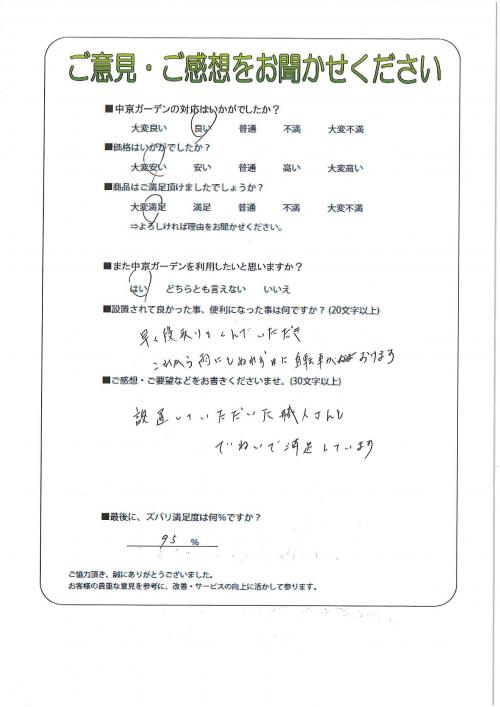 ご意見・ご感想をお聞かせください
■中京ガーデンの対応はいかがでしたか？
大変良い 良い 普通 不満 大変不満
■価格はいかがでしたか？
大変安い 安い 普通 高い 大変高い
■商品はご満足頂けましたでしょうか？
大変満足 満足 普通 不満 大変不満
⇒よろしければ理由をお聞かせください。
■また中京ガーデンを利用したいと思いますか？
はい どちらとも言えない いいえ
■設置されて良かった事、便利になった事は何ですか？(20文字以上)
早く段取りをくんでいただき
これから雨にもぬれずに自転車が おけます
■ご感想・ご要望などをお書きくださいませ。(30文字以上)
設置していただいた職人さんも
ていねいで満足しています
■最後に、ズバリ満足度は何％ですか？
95 ％
ご協力頂き、誠にありがとうございました。
お客様の貴重な意見を参考に、改善・サービスの向上に活かして参ります。